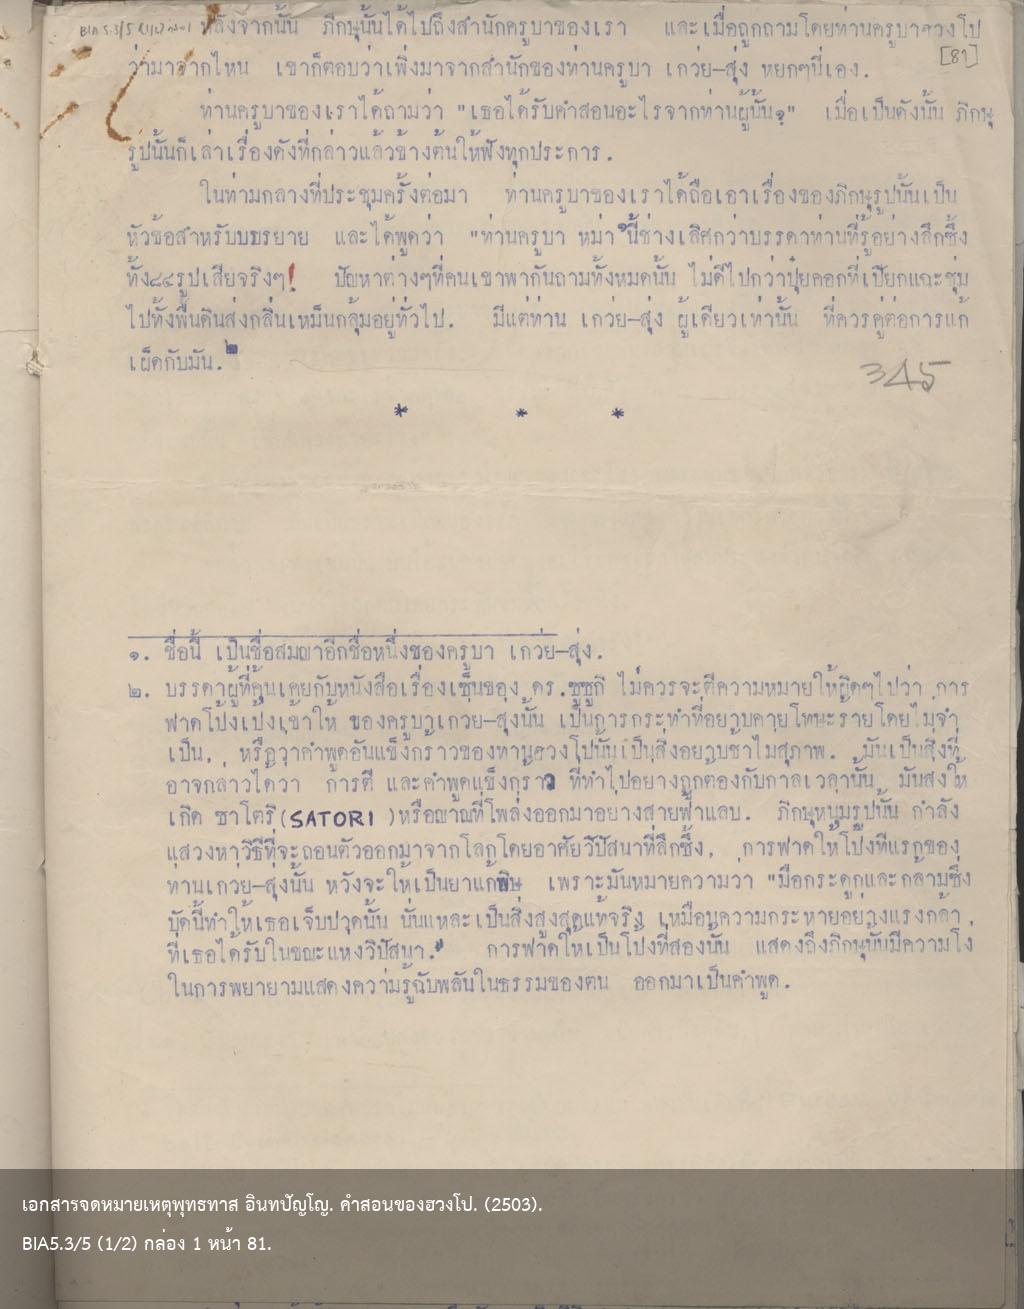 BIA 5.3/5 (1/2) กล่อง 1
หลังจากนั้น ภิกษุนั้นได้ไปถึงสำนักครูบาของเรา และเมื่อถูกถามโดยท่านครูบาฮวงโป
[81]
ว่ามาจากไหน เขาก็ตอบว่าเพิ่งมาจากสำนักของท่านครูบา เกว่ย-สุ่ง หยกๆนี่เอง.
ท่านครูบาของเราได้ถามว่า "เธอได้รับคำสอนอะไรจากท่านผู้นั้น?" เมื่อเป็นดังนั้น ภิกษุ
รูปนั้นก็เล่าเรื่องดังที่กล่าวแล้วข้างต้นให้ฟังทุกประการ.
ในท่ามกลางที่ประชุมครั้งต่อมา ท่านครูบาของเราได้ถือเอาเรื่องของภิกษุรูปนั้นเป็น
หัวข้อสำหรับบรรยาย และได้พูดว่า "ท่านครูบา หม่า๑นี้ช่างเลิศกว่าบรรดาท่านที่รู้อย่างลึกซึ้ง
ทั้ง๘๔รูปเสียจริงๆ! ปัญหาต่างๆที่คนเขาพากันถามทั้งหมดนั้น ไม่ดีไปกว่าปุ๋ยคอกที่เปียกแฉะชุ่ม
ไปทั้งพื้นดินส่งกลิ่นเหม็นกลุ้มอยู่ทั่วไป. มีแต่ท่าน เกว่ย-สุ่ง ผู้เดียวเท่านั้น ที่ควรคู่ต่อการแก้
เผ็ดกับมัน.๒
345
* * *
๑. ชื่อนี้ เป็นชื่อสมญาอีกชื่อหนึ่งของครูบา เกว่ย-สุ่ง.
๒. บรรดาผู้ที่คุ้นเคยกับหนังสือเรื่องเซ็นของ ดร.ซูซูกิ ไม่ควรจะตีความหมายให้ผิดๆไปว่า การ
ฟาดโป้งเป้งเข้าให้ ของครูบาเกว่ย-สุ่งนั้น เป็นการกระทำที่อยาบคายโทษะร้ายโดยไม่จำ
เป็น, หรือว่าคำพูดอันแข็งกร้าวของท่านฮวงโปนั้นเป็นสิ่งอยาบช้าไม่สุภาพ. มันเป็นสิ่งที่
อาจกล่าวได้ว่า การตี และคำพูดแข็งกร้าว ที่ทำไปอย่างถูกต้องกับกาลเวลานั้น มันส่งให้
เกิด ซาโตริ(SATORI )หรือญาณที่โพล่งออกมาอย่างสายฟ้าแลบ. ภิกษุหนุ่มรูปนั้น กำลัง
แสวงหาวิธีที่จะถอนตัวออกมาจากโลกโดยอาศัยวิปัสนาที่ลึกซึ้ง, การฟาดให้โป้งทีแรกของ
ท่านเกว่ย-สุ่งนั้น หวังจะให้เป็นยาแก้พิษ เพราะมันหมายความว่า "มือกระดูกและกล้ามซึ่ง
บัดนี้ทำให้เธอเจ็บปวดนั้น นั่นแหละเป็นสิ่งสูงสุดแท้จริง เหมือนความกระหายอย่างแรงกล้า,
ที่เธอได้รับในขณะแห่งวิปัสนา." การฟาดให้เป็นโป้งที่สองนั้น แสดงถึงภิกษุนั้นมีความโง่
ในการพยายามแสดงความรู้ฉับพลันในธรรมของตน ออกมาเป็นคำพูด.
เอกสารจดหมายเหตุพุทธทาส อินทปัญโญ. คำสอนของฮวงโป. (2503).
BIA5.3/5 (1/2) กล่อง 1 หน้า 81.